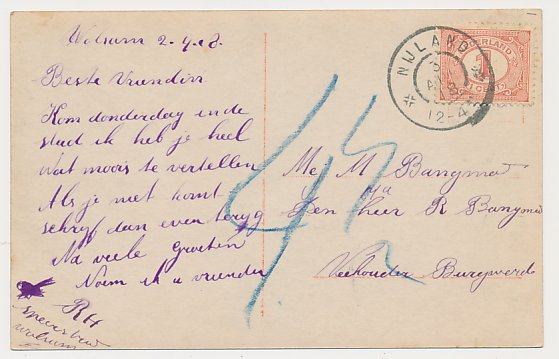 Wolsum 2-4-18.
Beste Vriendin
Kom donderdag in de
stad ik heb je heel
wat moois te vertellen
Als je niet komt
schrijf dan even terug
Na vele Groeten
Noem ik u vriendin
RH
wolsum
NIJLAND
12-4
NEDERLAND
1
Mej M Bangma
p/a
Den heer R Bangma
Veehouder Burgwerd
45